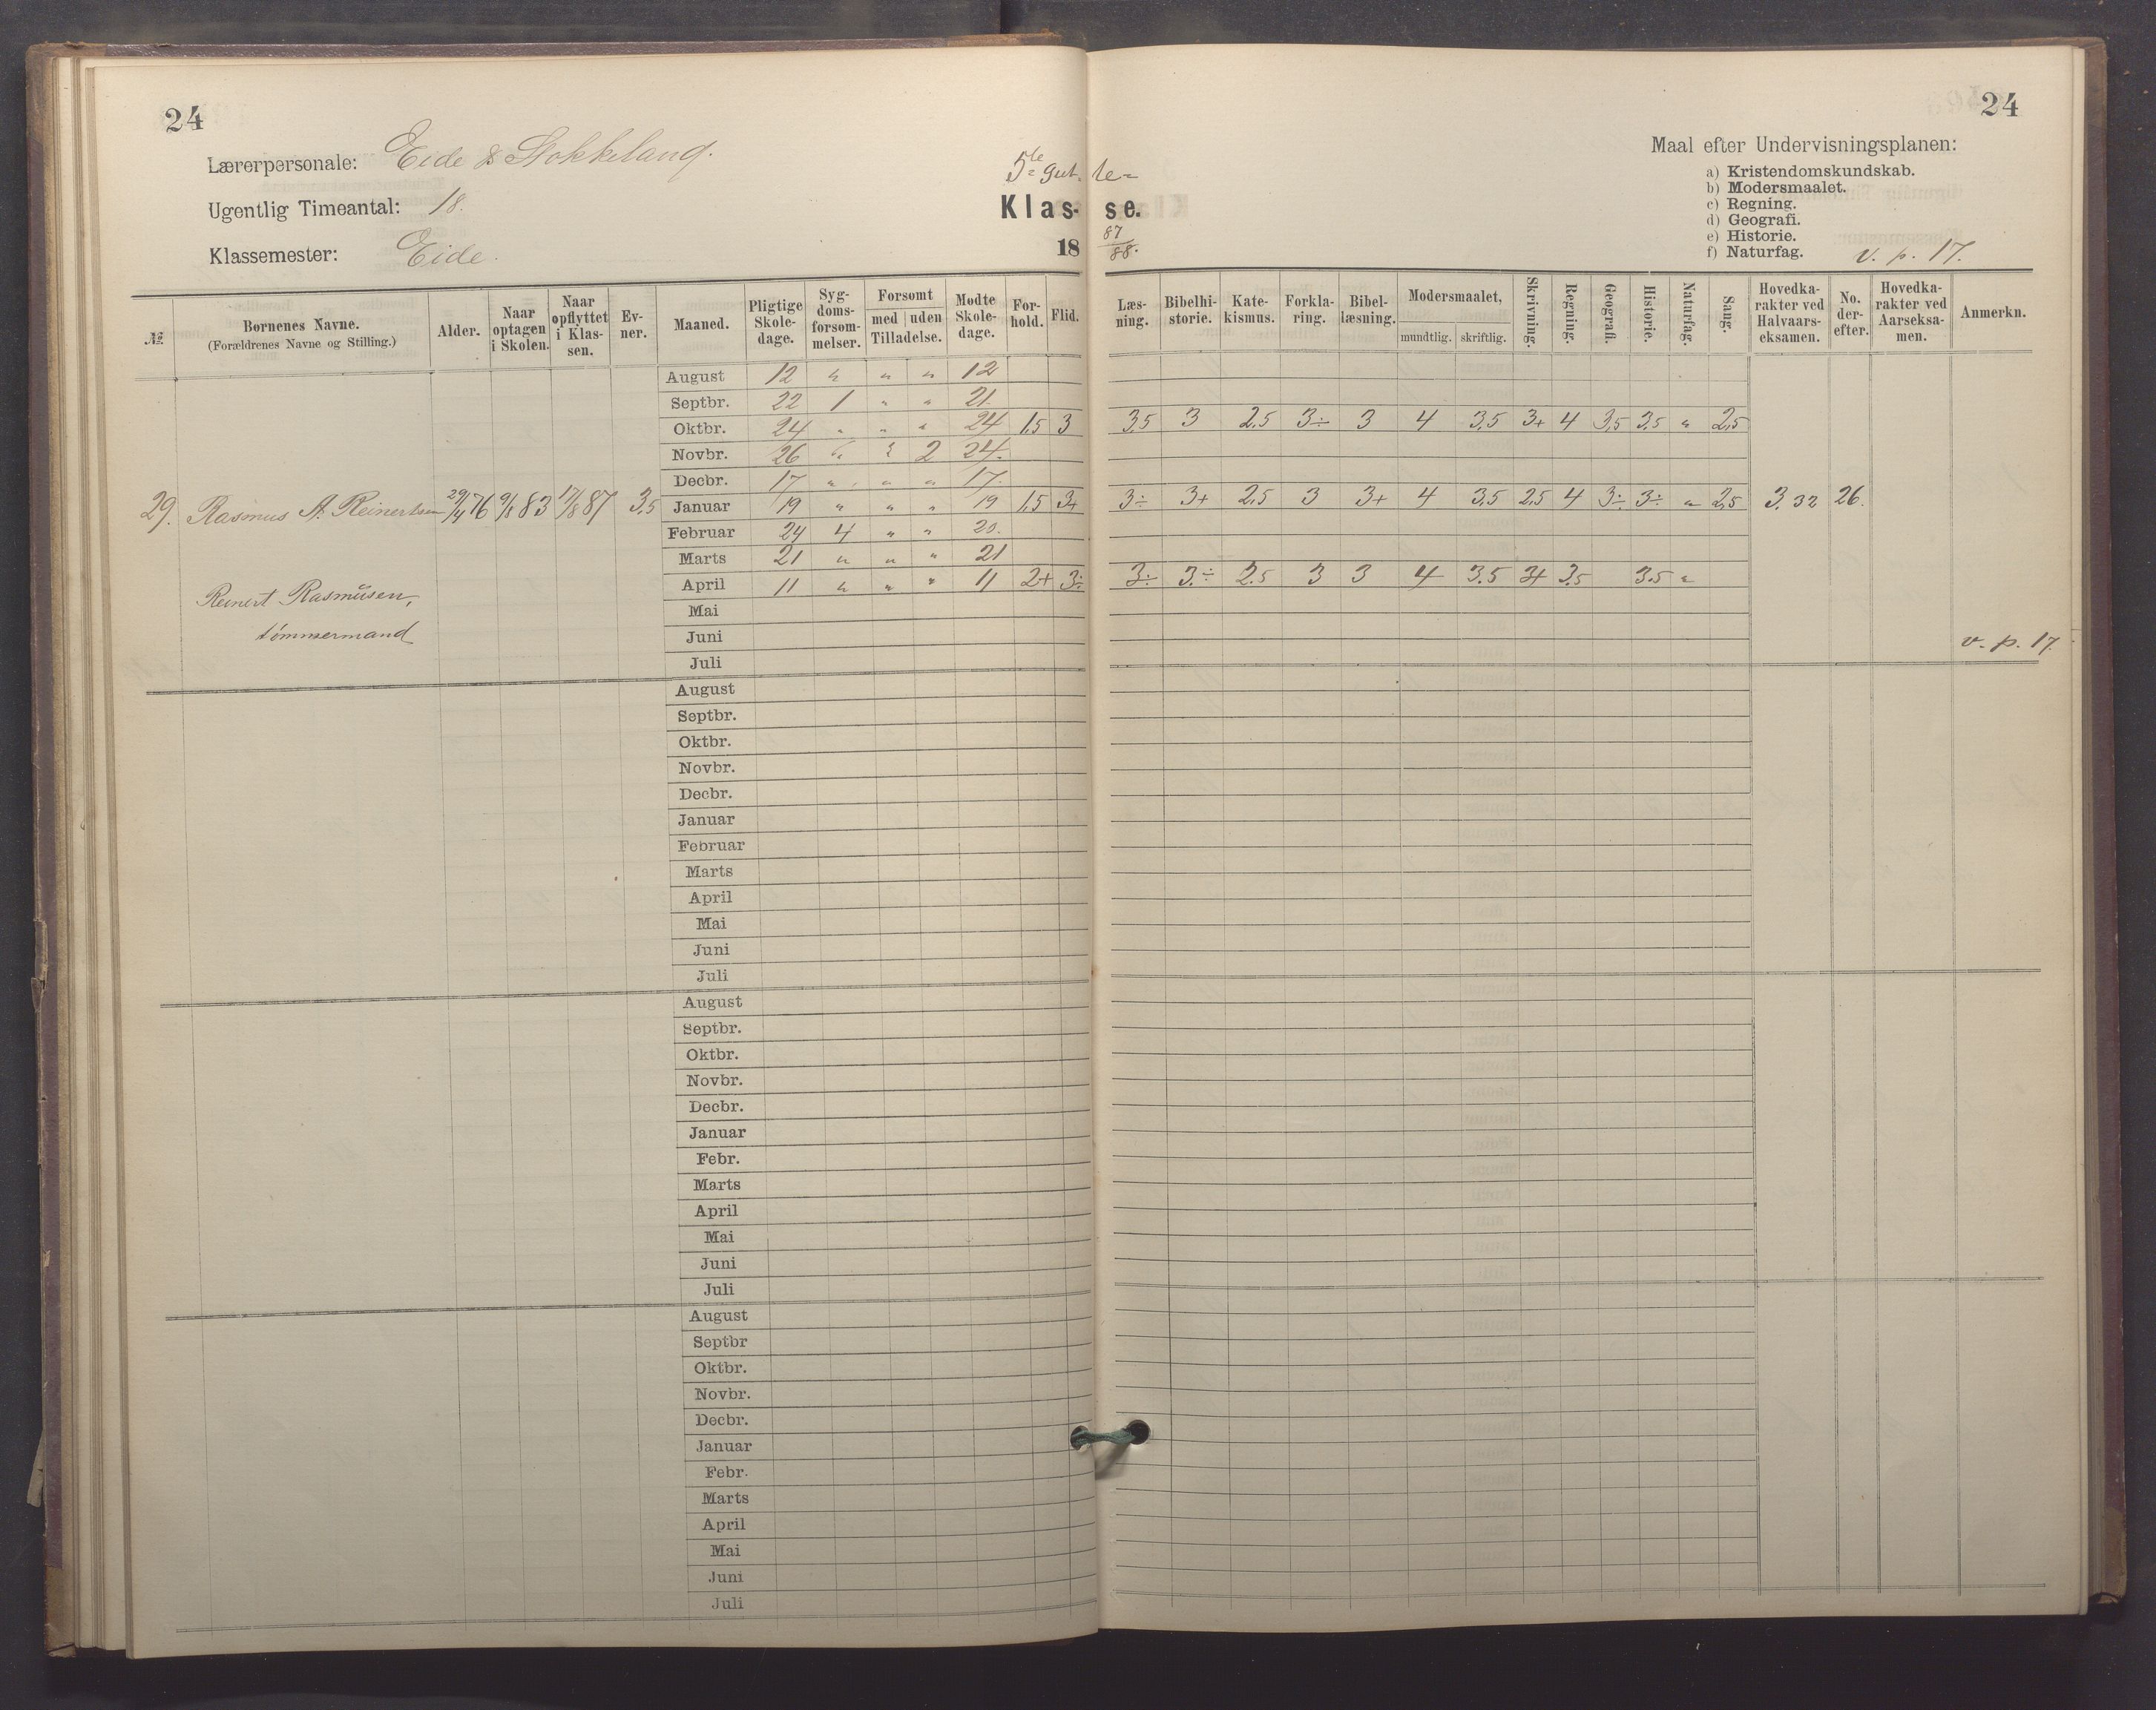 24
Lærerpersonale: Eide & Stokkeland.
Ugentlig Timeantal: 18.
Klassemester: Eide.
5te gut.
Klas-
18
24
te
se.
87/88.
Maal efter Undervisningsplanen:
a) Kristendomskundskab.
b) Modersmaalet.
c) Regning.
d) Geografi.
e) Historie.
f) Naturfag. v. p. 17.
№ Børnenes Navne. (Forældrenes Navne og Stilling.) Alder. Naar optagen i Skolen. Naar opflyttet i Klassen. Evner. Maaned. Pligtige Skoledage. Sygdomsforsømmelser. Forsømt med uden Tilladelse. Mødte Skoledage. Forhold. Flid.
Læsning. Bibelhistorie. Katekismus. Forklaring. Bibellæsning. Modersmaalet, mundtlig. skriftlig. Skrivning. Regning. Geografi. Historie. Naturfag. Sang. Hovedkarakter ved Halvaarseksamen. No. derefter. Hovedkarakter ved Aarseksamen. Anmerkn.
August 12 " " " 12
Septbr. 22 1 " " 21
Oktbr. 24 " " " 24 1,5 3 3,5 3 2,5 3÷ 3 4 3,5 3+ 4 3,5 3,5 " 2,5
Novbr. 26 " " 2 24.
Decbr. 17 " " " 17.
29. Rasmus A. Reinertsen 29/4 76 9/1 83 17/8 87 3,5 Januar 19 " " " 19 1,5 3+ 3÷ 3+ 2,5 3 3+ 4 3,5 2,5 4 3÷ 3÷ " 2,5 3,32 26.
Februar 24 4 " " 20.
Marts 21 " " " 21
April 11 " " " 11 2+ 3÷ 3÷ 3÷ 2,5 3 3 4 3,5 3+ 3,5 3,5 "
Reinert Rasmusen,
tømmermand
Mai
Juni v. p. 17.
Juli
August
Septbr.
Oktbr.
Novbr.
Decbr.
Januar
Februar
Marts
April
Mai
Juni
Juli
August
Septbr.
Oktbr.
Novbr.
Decbr.
Januar
Febr.
Marts
April
Mai
Juni
Juli
August
Septbr
Oktbr.
Novbr.
Decbr.
Januar
Febr.
Marts
April
Mai
Juni
Juli